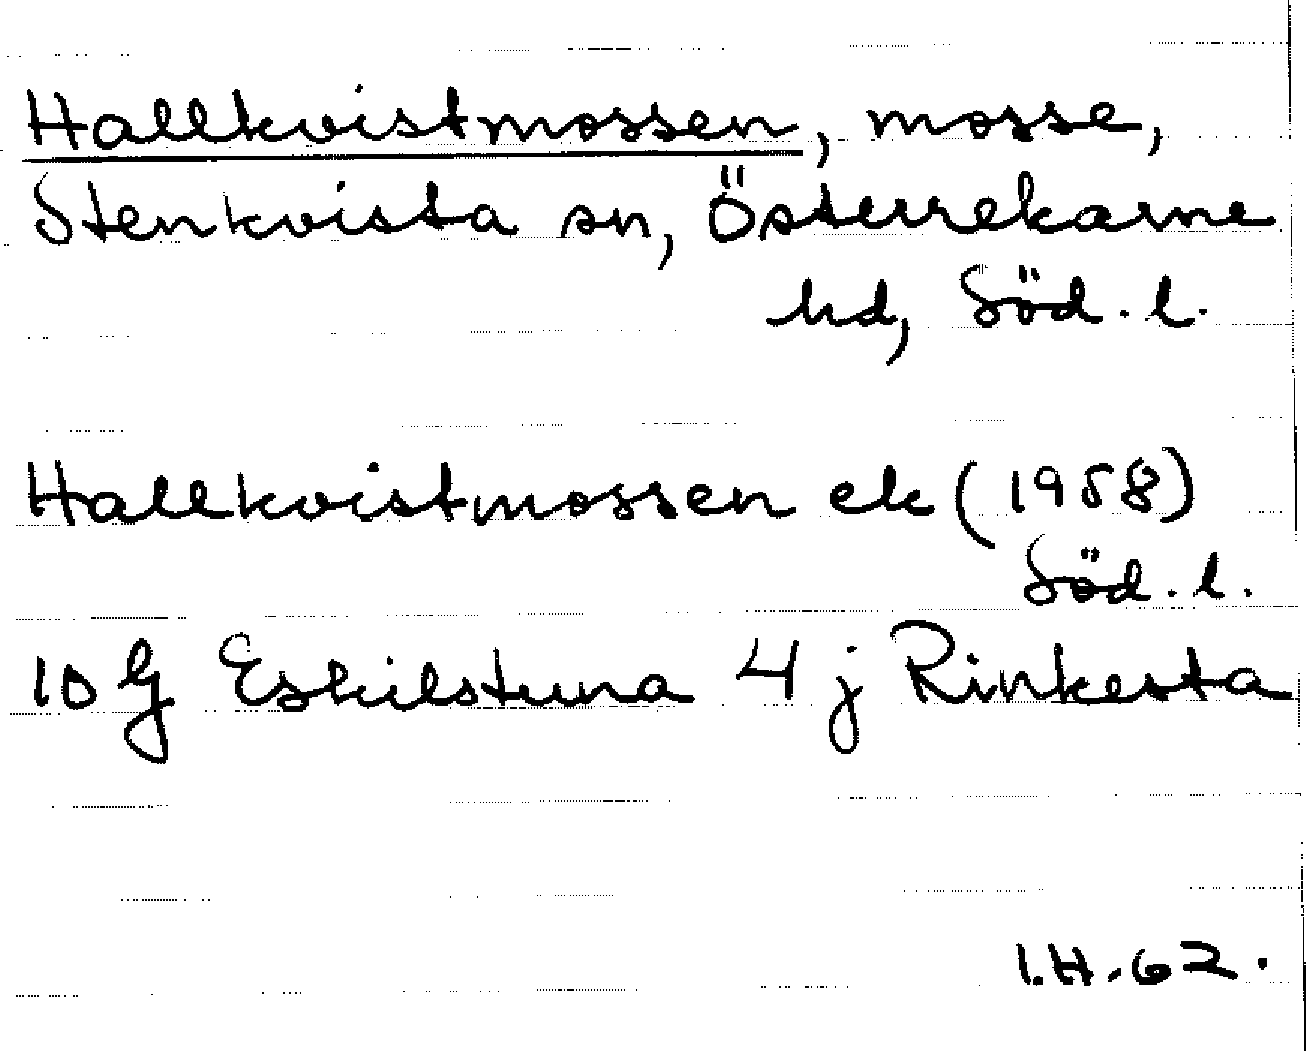 Hallkvistmossen, mosse,
Stenkvista sn, Österrekarne
hd, Söd. l.
Hallkvistmossen ek (1958)
Söd. l.
10 G Eskilstuna 4 j Rinkesta
I.H.62.